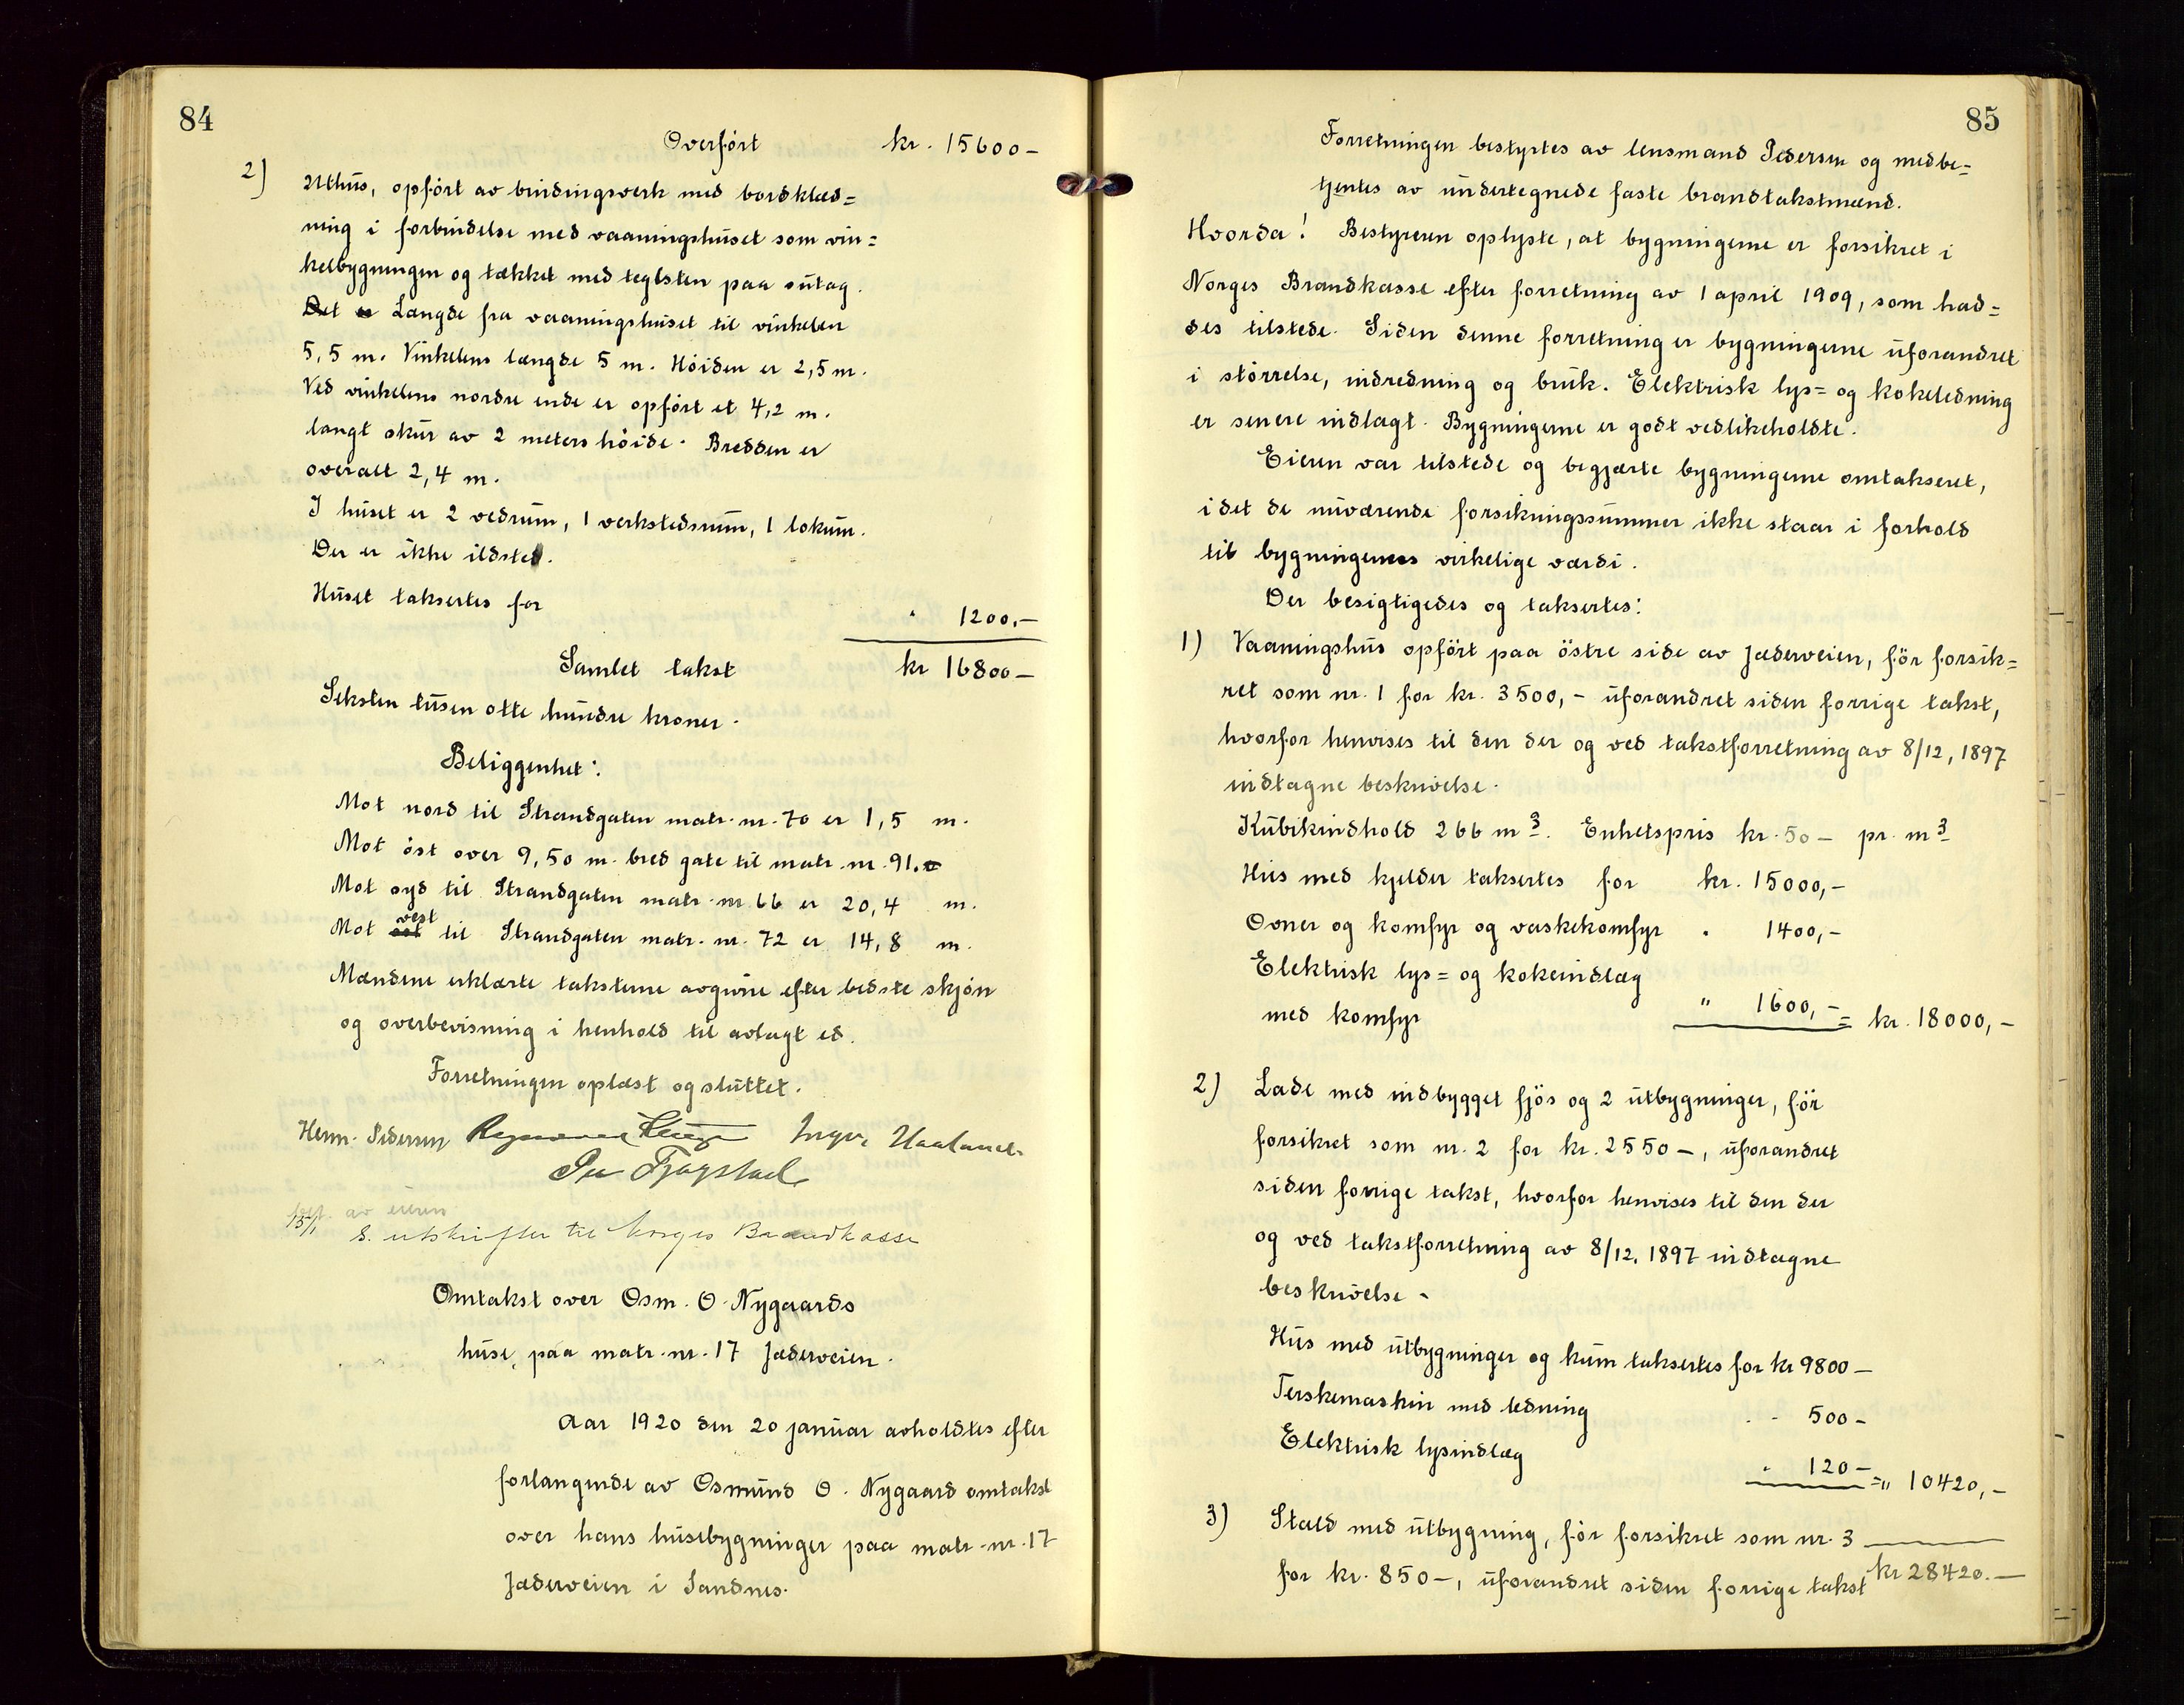 84
Overført kr. 15600-
2) Uthus, opført av bindingsverk med bordklæd=
ning i forbindelse med vaaningshuset som vin=
kelbygningen og tækket med teglsten paa sutag.
Det er Længde fra vaaningshuset til vinkelen
5,5 m. Vinkelens længde 5 m. Høiden er 2,5 m.
Ved vinkelens nordre ende er opført et 4,2 m.
langt skur av 2 meters høide. Bredden er
overalt 2,4 m.
I huset er 2 vedrum, 1 verkstedsrum, 1 lokum.
Der er ikke ildsted.
Huset taksertes for " 1200,-
Samlet takst kr 16800-
Seksten tusen otte hundre kroner.
Beliggenhet:
Mot nord til Strandgaten matr. nr. 70 er 1,5 m.
Mot øst over 9,50 m. bred gate til matr. nr. 91.
Mot syd til Strandgaten matr. nr. 66 er 20,4 m.
Mot øst vest til Strandgaten matr. nr. 72 er 14,8 m.
Mændene erklærte taksterne avgivne efter bedste skjøn
og overbevisning i henhold til avlagt ed.
Forretningen oplæst og sluttet.
Herm. Pedersen Ingv. Haaland
Per Tjøgstad
av eieren
15/1 S. utskrifter til Norges Brandkasse
Omtakst over Osm. O. Nygaards
huse, paa matr. nr. 17 Jæderveien.
Aar 1920 den 20 januar avholdtes efter
forlangende av Osmund O. Nygaard omtakst
over hans husebygninger paa matr. nr. 17
Jæderveien i Sandnes.
85
Forretningen bestyrtes av lensmand Pedersen og medbe=
tjentes av undertegnede faste brandtakstmænd.
Hvorda! Bestyreren oplyste, at bygningerne er forsikret i
Norges Brandkasse efter forretning av 1 april 1909, som had=
des tilstede. Siden denne forretning er bygningerne uforandret
i størrelse, indredning og bruk. Elektrisk lys= og kokeledning
er senere indlagt. Bygningerne er godt vedlikeholdte.
Eieren var tilstede og begjærte bygningerne omtakseret,
idet de nuværende forsikringssummer ikke staar i forhold
til bygningernes virkelige værdi.
Der besigtigedes og taksertes:
1) Vaaningshus opført paa östre side av Jæderveien, för forsik=
ret som nr. 1 for kr. 3500,- uforandret siden forrige takst,
hvorfor henvises til den der og ved takstforretning av 8/12, 1897
indtagne beskrivelse.
Kubikindhold 266 m3. Enhetspris kr. 50- pr. m3
Hus med kjelder taksertes for kr. 15000,-
Ovner og komfyr og vaskekomfyr " 1400,-
Elektrisk lys= og kokeindlæg
med komfyr " 1600,- = kr. 18000,-
2) Lade med indbygget fjös og 2 utbygninger, för
forsikret som nr. 2 for kr. 2550-, uforandret
siden forrige takst, hvorfor henvises til den der
og ved takstforretning av 8/12. 1897 indtagne
beskrivelse.
Hus med utbygninger og kum taksertes for kr 9800-
Terskemaskin med ledning " " 500-
Elektrisk lysindlæg " 120- =" 10420,-
3) Stald med utbygning, før forsikret som nr. 3
for kr. 850-, uforandret siden forrige takst kr 28420.-